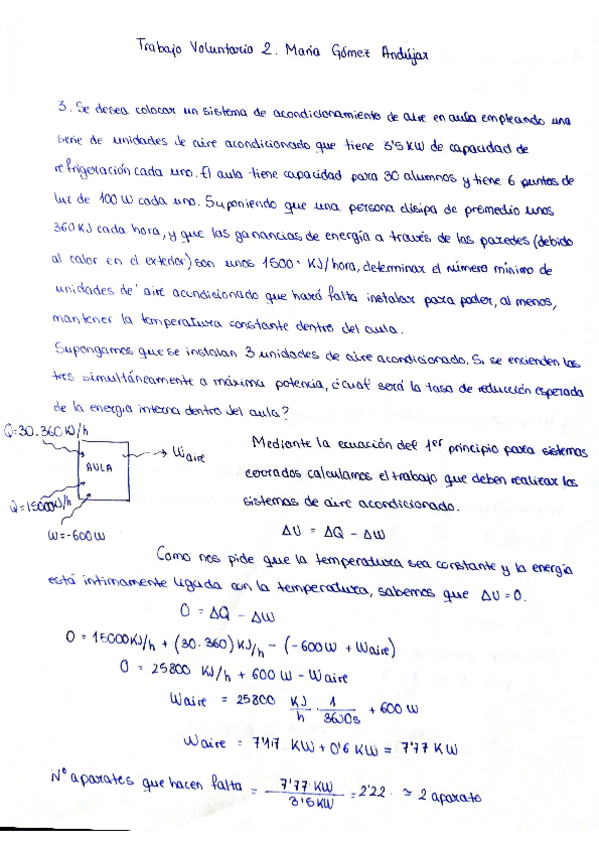 Trabajo Voluntario 2. María Gómez Andújar
3. Se desea colocar un sistema de acondicionamiento de aire en aula empleando una
serie de unidades de aire acondicionado que tiene 3'5 KW de capacidad de
refrigeración cada uno. El aula tiene capacidad para 30 alumnos y tiene 6 puntos de
luz de 100 W cada uno. Suponiendo que una persona disipa de premedio unos
360 KJ cada hora, y que las ganancias de energía a través de las paredes (debido
al calor en el exterior) son unos 1500· KJ/hora, determinar el número mínimo de
unidades de aire acondicionado que hará falta instalar para poder, al menos,
mantener la temperatura constante dentro del aula.
Supongamos que se instalan 3 unidades de aire acondicionado. Si se encienden las
tres simultáneamente a máxima potencia, ¿cual será la tasa de reducción esperada
de la energia interna dentro del aula?
Q=30.360 KJ/h
AULA
Waire
Q=15000KJ/h
W=-600W
Mediante la ecuación del 1er principio para sistemas
cerrados calculamos el trabajo que deben realizar los
sistemas de aire acondicionado.
ΔU = ΔQ - ΔW
Como nos pide que la temperatura sea constante y la energía
está íntimamente ligada con la temperatura, sabemos que ΔU=0.
0 = ΔQ - ΔW
0 = 15000KJ/h + (30.360) KJ/h - (-600W + Waire)
0 = 25800 KJ/h + 600 W - Waire
Waire = 25800 KJ/h · 1/3600s + 600 W
Waire = 7'17 KW + 0'6 KW = 7'77 KW
Nº aparatos que hacen falta = 7'77 KW / 3'5 KW = 2'22 ≃ 2 aparato